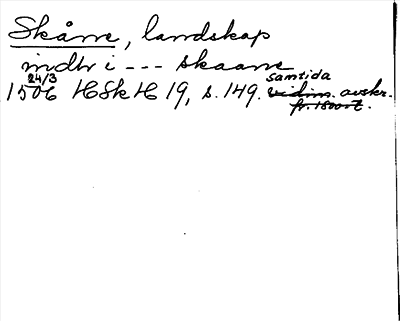 Skåne, landskap
indtr i --- skaane
24/3 samtida
1506 HSkH 19, s. 149. vidim. avskr.
fr. 1500-t.